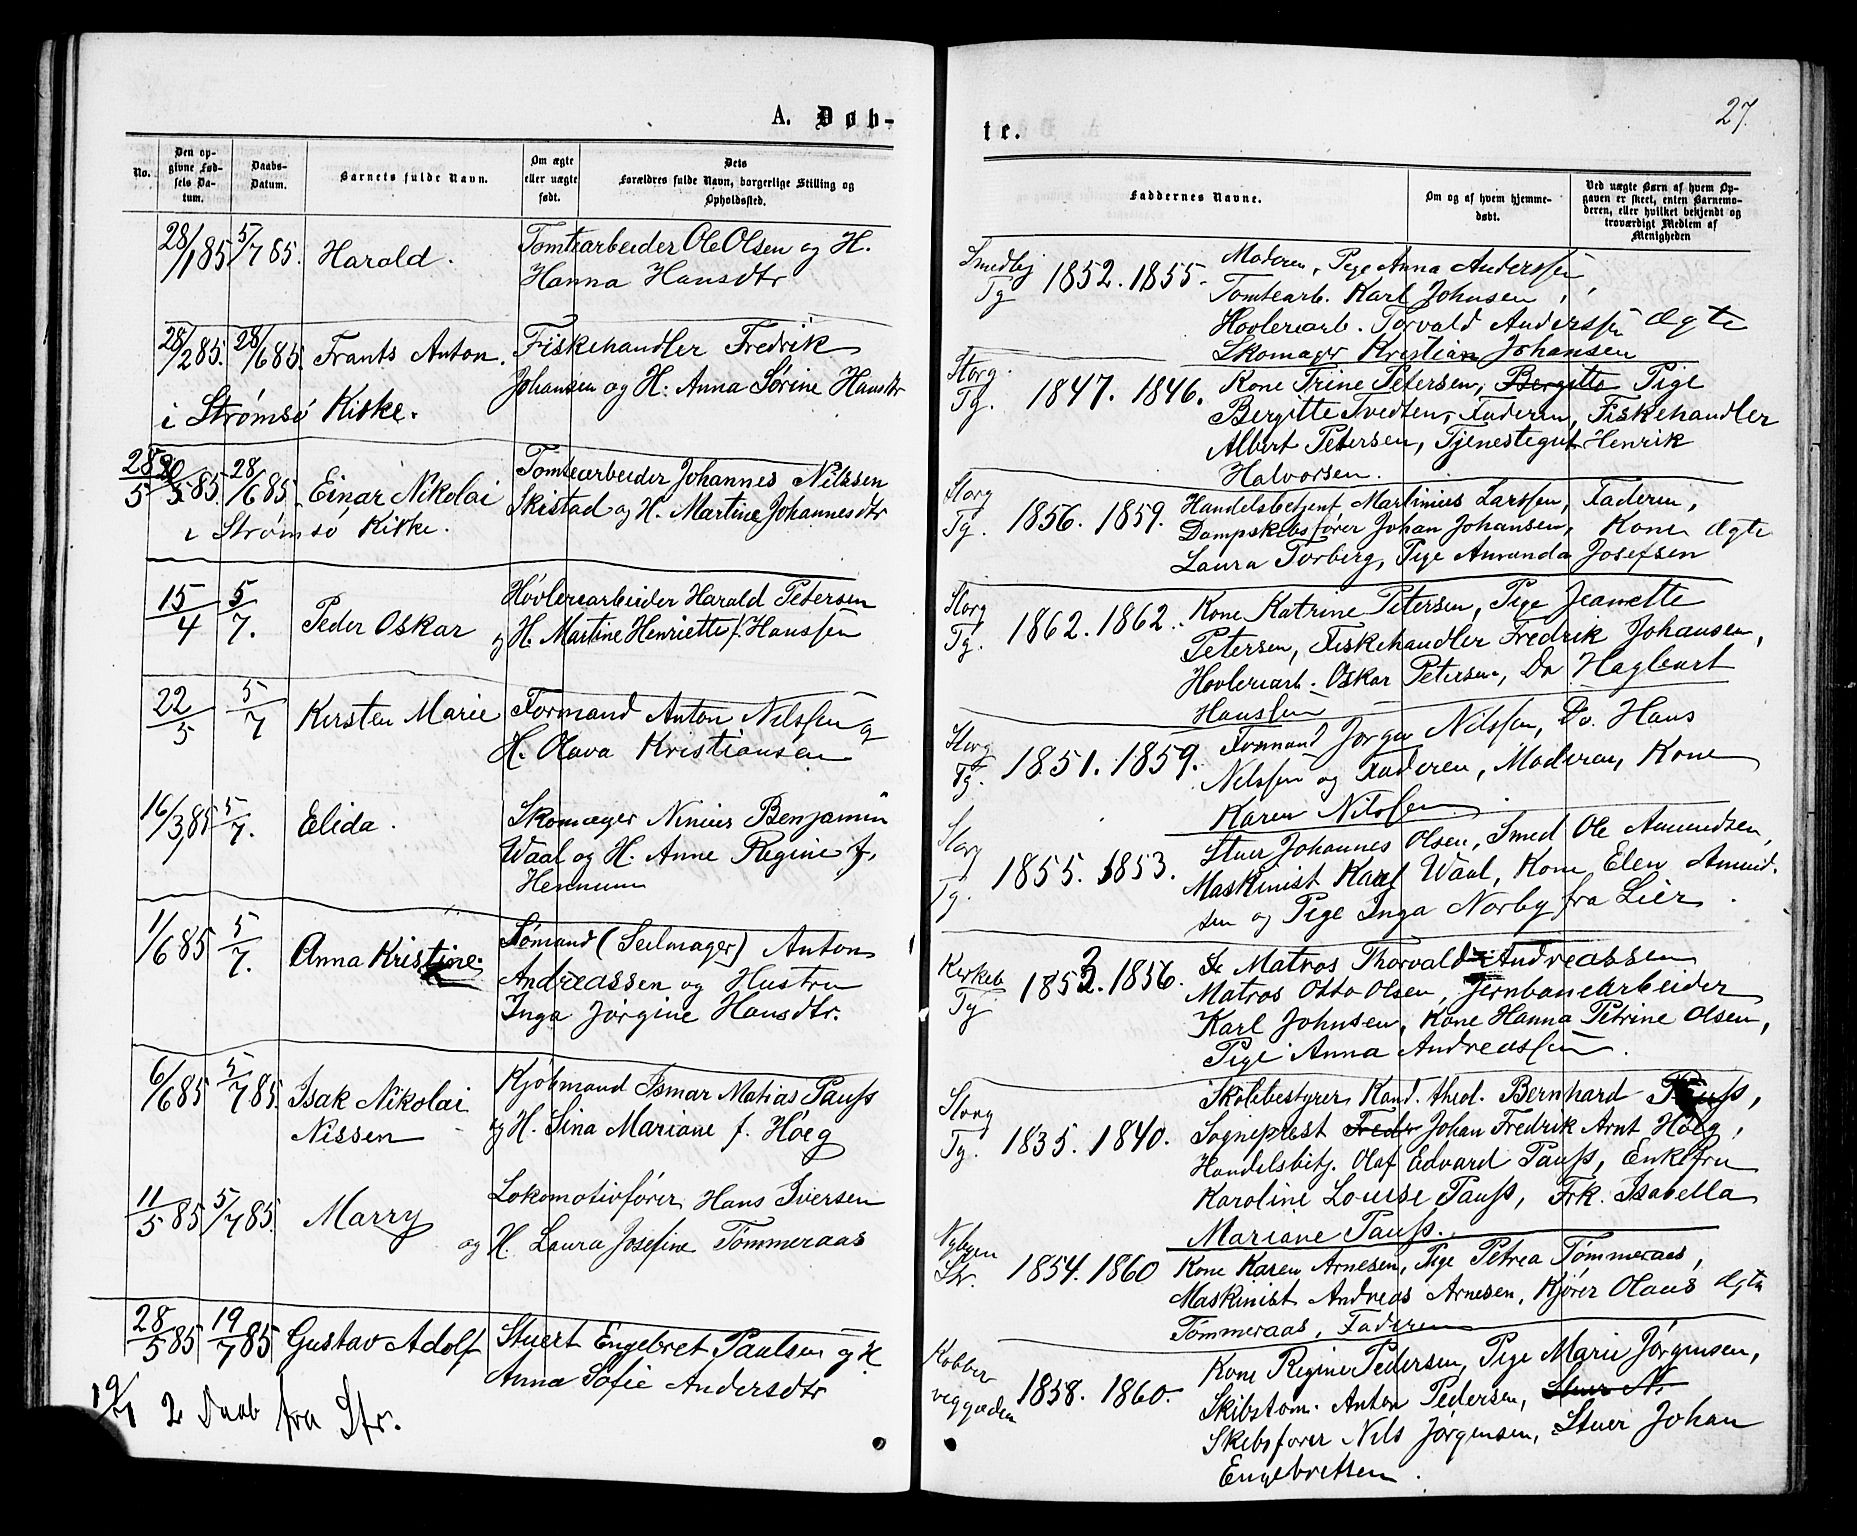 A. Døb-
No.
Den op-
givne Fød-
sels Da-
tum.
Daabs-
Datum.
Barnets fulde Navn.
Om ægte
eller uægte
født.
Dets
Forældres fulde Navn, borgerlige Stilling og
Opholdssted.
28/1 85 5/7 85. Harald. Tomtearbeider Ole Olsen og H.
Hanna Hansdtr
28/2 85. 28/6 85. Frants Anton. Fiskehandler Fredrik
Johansen og H. Anna Sørine Hansdtr
i Strømsø Kirke.
28/5 5 85. 28/6 85. Einar Nikolai Tomtearbeider Johannes Nilssen
Skistad og H. Martine Johannesdtr
i Strømsø Kirke.
15/4 5/7. Peder Oskar Høvleriarbeider Harald Petersen
og H. Martine Henriette f. Hanssen
22/5 5/7 Kirsten Marie Formand Anton Nilssen og
H. Olava Kristiansen
16/3 85 5/7. Elida. Skomager Ninius Benjamin
Waal og H. Anne Regine f.
Hennum
1/6 85 5/7. Anna Kristine. Sømand (Seilmager) Anton
Andreassen og Hustru
Inga Jørgine Hansdtr.
6/6 85 5/7 85. Isak Nikolai Kjøbmand Ismar Matias Pauss
Nissen og H. Sina Mariane f. Høeg
11/5 85 5/7 85. Marry Lokomotivfører Hans Iversen
og H. Laura Josefine Tømmeraas
28/5 85 19/7 85 Gustav Adolf Stuert Engebret Paulsen og H
Anna Sofie Andersdtr
19/7 2 Daab fra Str.
27.
te.
Faddernes Navne.
Om og af hvem hjemme-
døbt.
Ved uægte Børn af hvem Op-
gaven er skeet, enten Barnemo-
deren, eller hvilket bekjendt og
troværdigt Medlem af
Menigheden
Smedbg
Tg 1852. 1855. Moderen, Pige Anna Anderssen
Tomtearb. Karl Johnsen,
Høvleriarb. Torvald Anderssen Ægte
Skomager Kristian Johansen
Storg.
Tg. 1847. 1846. Kone Trine Petersen, Bergitte Pige
Bergitte Tvedten, Faderen, Fiskehandler
Albert Petersen, Tjenestegut Henrik
Halvorsen.
Storg
Tg. 1856. 1859. Handelsbetjent Martinius Larssen, Faderen,
Dampskibsfører Johan Johansen, Kone Ægte
Laura Torberg, Pige Amanda Josefsen
Storg
Tg. 1862. 1862. Kone Katrine Petersen, Pige Jeanette
Petersen, Fiskehandler Fredrik Johansen,
Høvleriarb. Oskar Petersen, Do Hagbart
Hanssen
Storg
Tg. 1851. 1859. Formand Jørgen Nilssen, Do. Hans
Nilssen og Faderen, Moderen, Kone
Karen Nilssen
Storg
Tg. 1855. 1853. Stuer Johannes Olsen, Smed Ole Amundsen,
Maskinist Karl Waal, Kone Elen Amund-
sen og Pige Inga Nørby fra Lier.
Kirkeb
Tg 1853. 1856. Matros Thorvald Andreassen
Matros Otto Olsen, Jernbanearbeider
Karl Johnsen, Kone Hanna Petrine Olsen,
Pige Anna Andreassen.
Storg
Tg. 1835. 1840. Skolebestyrer Kand. theol. Bernhard Pauss,
Sogneprest Fredr Johan Fredrik Arnt Høeg,
Handelsbetj. Olaf Edvard Pauss, Enkefru
Karoline Louise Pauss, Frk. Isabella
Mariane Pauss.
Nybyen
Str. 1854. 1860 Kone Karen Arnesen, Pige Petrea Tømmeraas,
Maskinist Andreas Arnesen, Kjører Olaus Ægte
Tømmeraas, Faderen
Kobber
veggaden 1858. 1860. Kone Regine Pedersen, Pige Marie Jørgensen,
Skibstøm. Anton Pedersen, Stuer N.
Skibsfører Nils Jørgensen, Stuer Johan
Engebretsen.